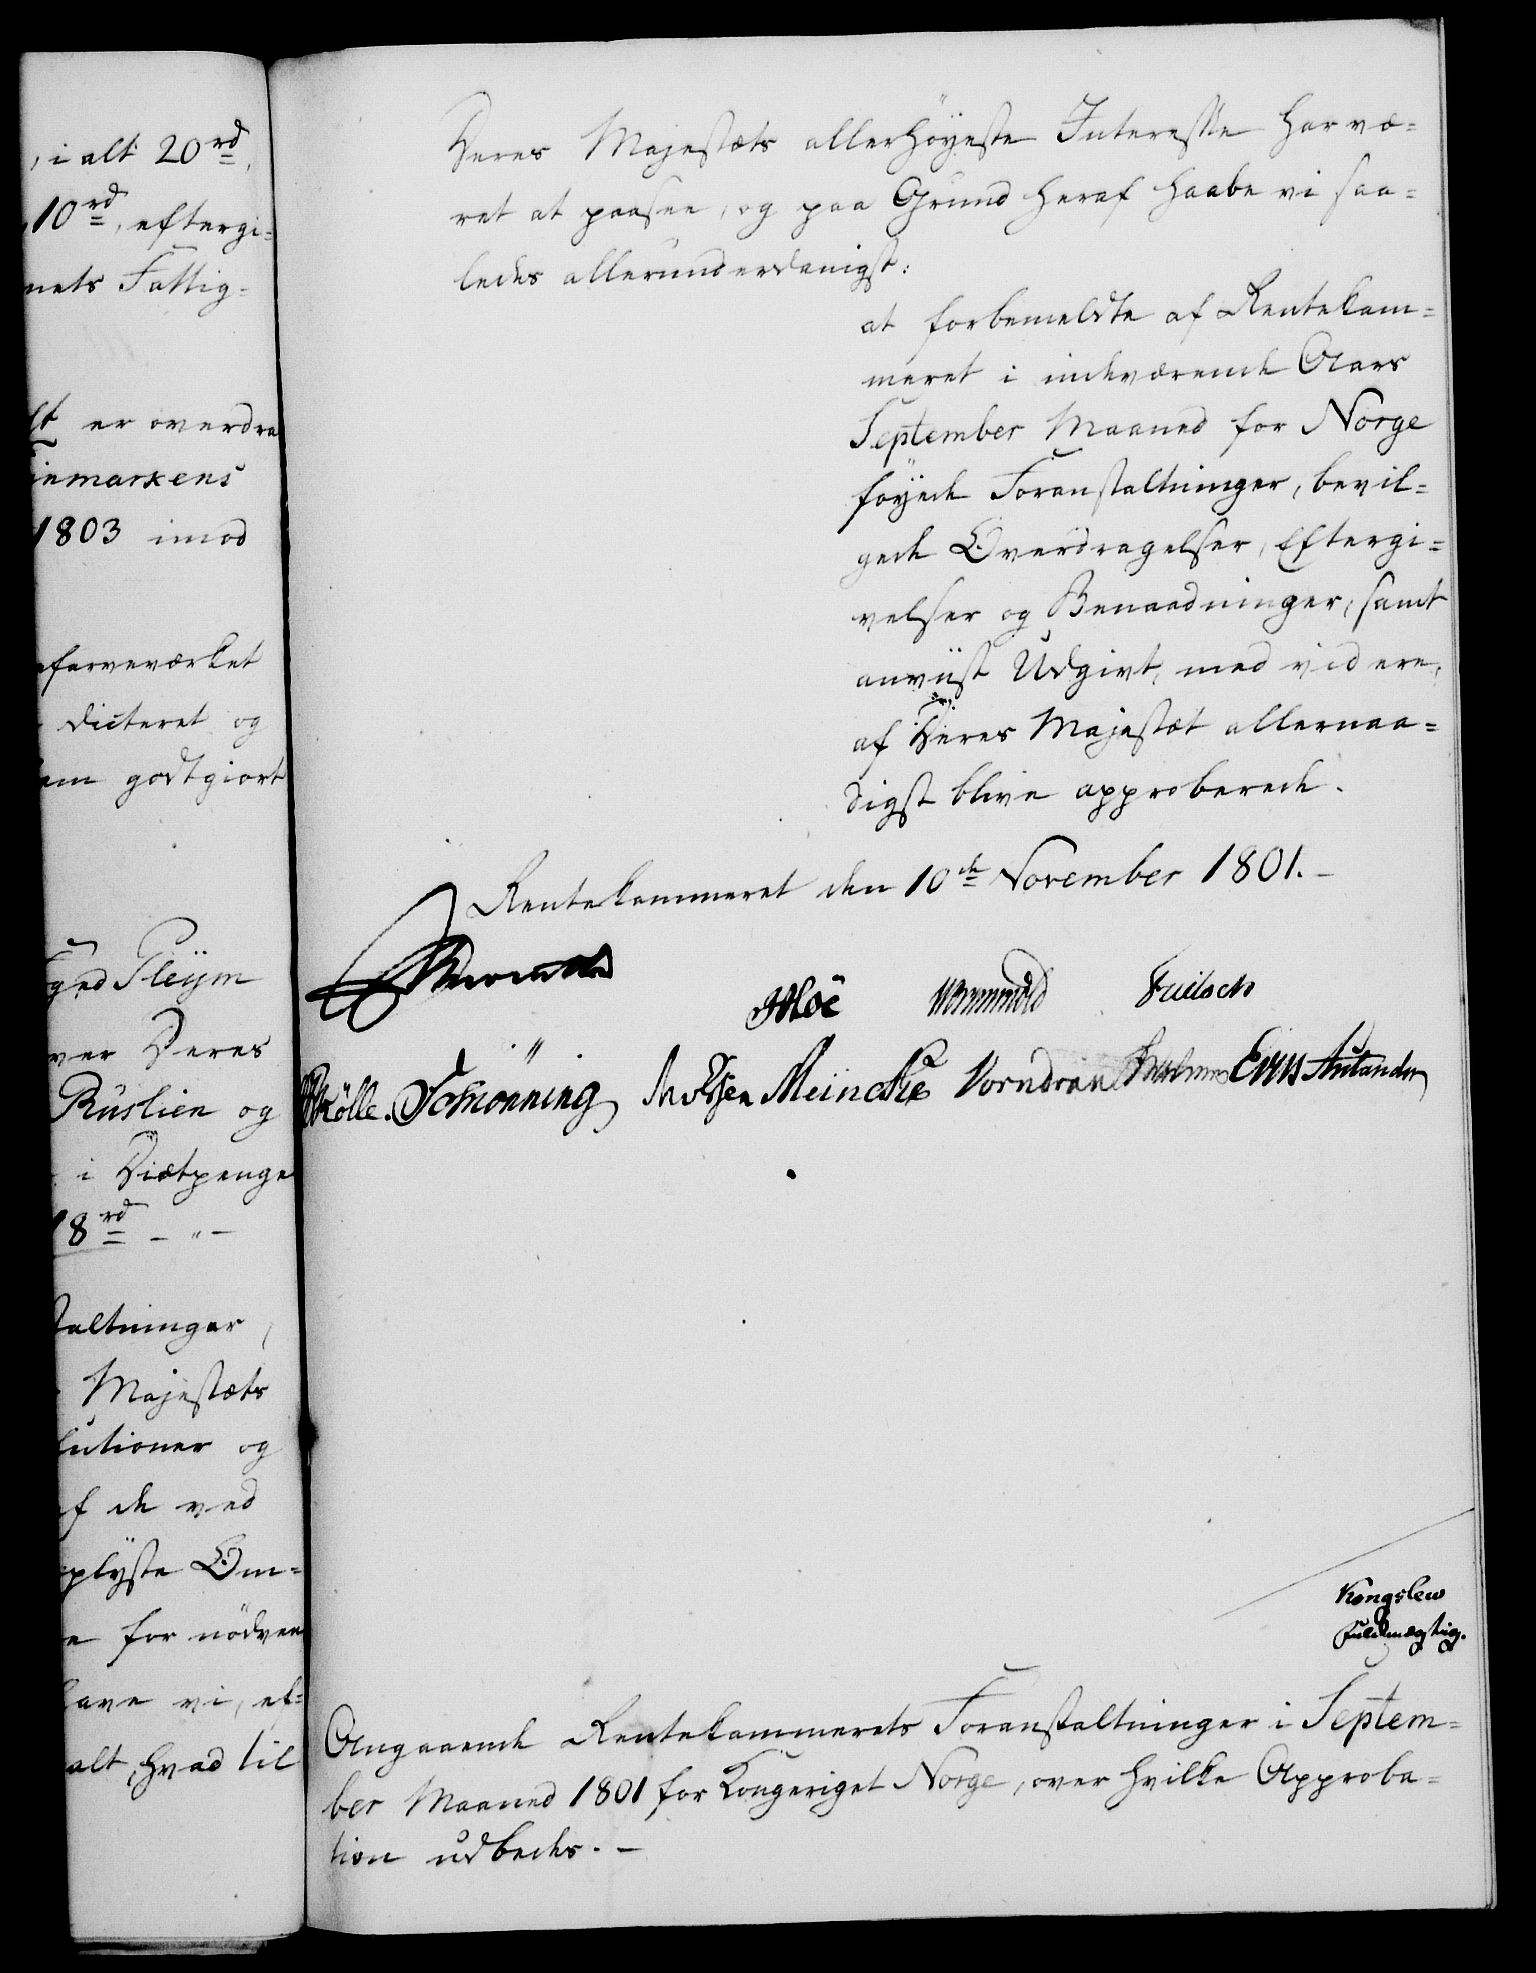 , i alt 20 rd,
10 rd, eftergi=
nets Fattig=
er overdra
inmarkens
1803 imod
farveværket
dicteret og
em godtgiort
Pleÿm
ver Deres
Ruslien og
i Diætpenge
18 rd – " –
taltninger,
Majestæts
lutioner og
f de ved
plÿste Om=
e for nödven
have vi, ef=
alt, hvad til
Deres Majestæts allerhöÿeste Interesse har væ=
ret at paasee, og paa Grund heraf haabe vi saa=
ledes allerunderdanigst:
at forbemeldte af Rentekam=
meret i indeværende Aars
September Maaned for Norge
föÿede Foranstaltninger, bevil=
gede Overdragelser, Eftergi=
velser og Benaadninger, samt
anviist Udgivt, med videre,
af Deres Majestæt allernaa=
digst blive approberede.
Rentekammeret den 10de November 1801. –
Moe Wormskiold
Kölle. Schiönning Meincke Vorndran
Kongslew
Fuldmægtig.
Angaaende Rentekammerets Foranstaltninger i Septem=
ber Maaned 1801 for Kongeriget Norge, over hvilke Approba=
tion udbedes. –